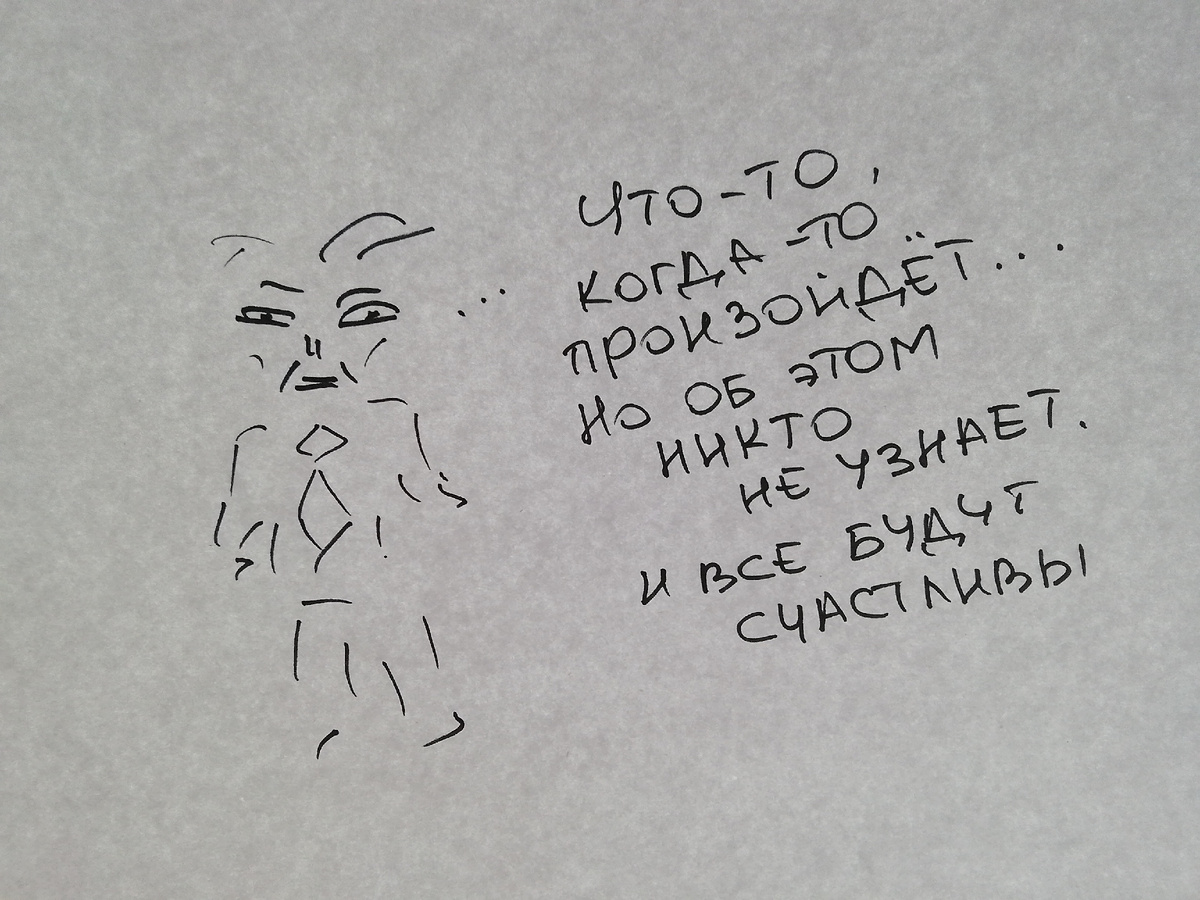 ЧТО-ТО,
КОГДА-ТО
ПРОИЗОЙДЁТ...
НО ОБ ЭТОМ
НИКТО
НЕ УЗНАЕТ.
И ВСЕ БУДУТ
СЧАСТЛИВЫ